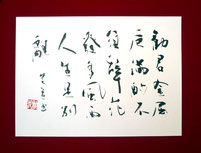 勧君金屈
卮満酌不
須辞花
發多風雨
人生足別
離